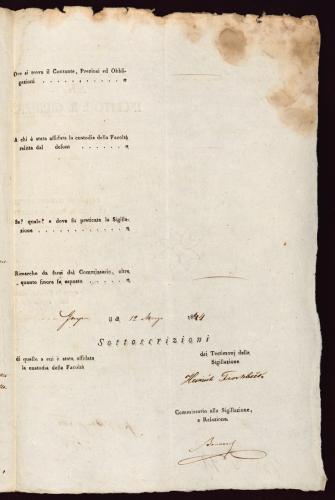 Ove si trova il Contante, Preziosi ed Obbli-
gazioni . . . . . . . . . . . . n
A chi è stata affidata la custodia della Facoltà
relitta dal defont . . . . . . . . n
Se? quale? e dove fù praticata la Sigilla-
zione . . . . . . . . . . . . . n
Rimarche da farsi dal Commissario, oltre
quanto finora fu esposto . . . . . . n
12 1844
Sottoscrizioni
di quello a cui è stata affidata
la custodia della Facoltà
dei Testimonj della
Sigillazione
Heinrich
Commissario alla Sigillazione,
e Relazione.